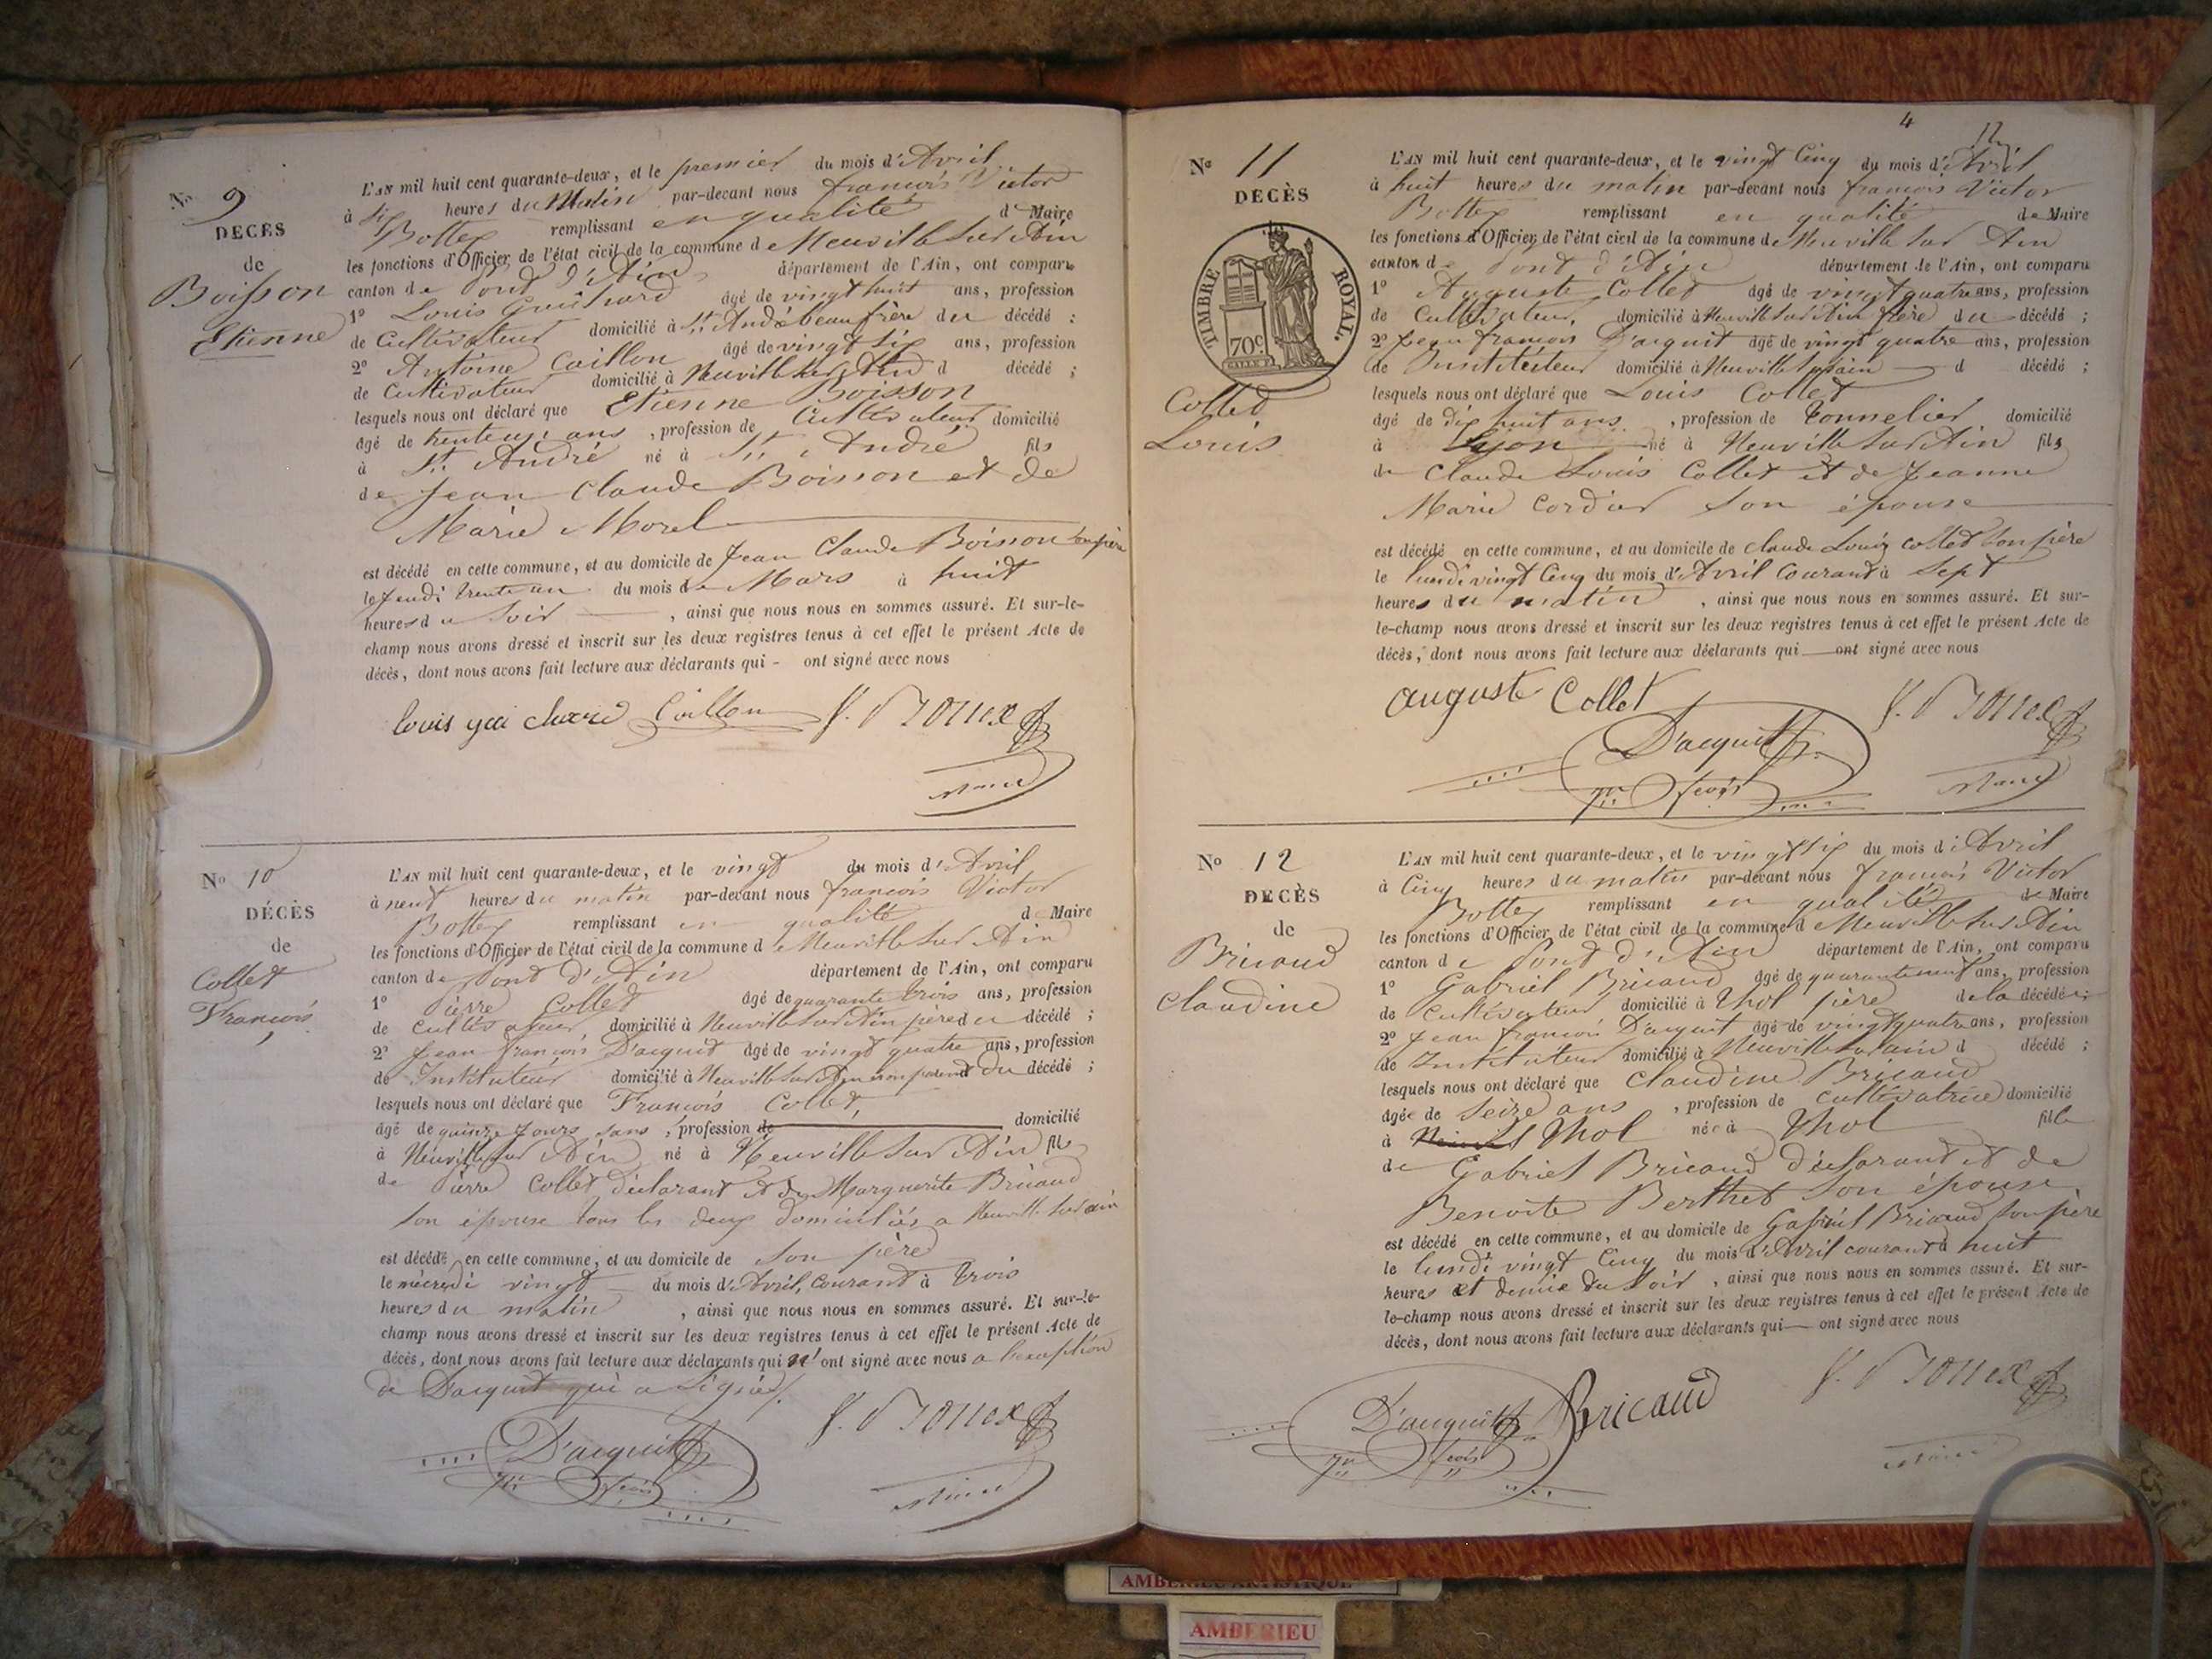 No 9
DECES
de
Boisson
Etienne
L'AN mil huit cent quarante-deux, et le premier du mois d'Avril
à six heures du Matin par-devant nous françois Victor
Bottex remplissant en qualité d Maire
les fonctions d'Officier de l'état civil de la commune de Neuville sur Ain
canton de Pont d'Ain département de l'Ain, ont comparu
1o Louis Guichard âgé de vingt huit ans, profession
de Cultivateur domicilié à St. André beau frère du décédé ;
2o Antoine Caillon âgé de vingt six ans, profession
de Cultivateur domicilié à Neuville sur Ain d décédé ;
lesquels nous ont déclaré que Etienne Boisson
âgé de ans , profession de Cultivateur domicilié
à St. André né à St. André fils
de Jean Claude Boisson et de
Marie Morel
est décédé en cette commune, et au domicile de Jean Claude Boisson son père
le Jeudi trente un du mois de Mars à huit
heures du Soir , ainsi que nous nous en sommes assuré. Et sur-le-
champ nous avons dressé et inscrit sur les deux registres tenus à cet effet le présent Acte de
décès, dont nous avons fait lecture aux déclarants qui - ont signé avec nous
louis gui chard Caillon V. Bottex
Maire
No 10
DÉCÈS
de
Collet
François
L'AN mil huit cent quarante-deux, et le vingt du mois d'Avril
à neuf heures du matin par-devant nous françois Victor
Bottex remplissant en qualité de Maire
les fonctions d'Officier de l'état civil de la commune de Neuville sur Ain
canton de Pont d'Ain département de l'Ain, ont comparu
1o Pierre Collet âgé de quarante trois ans, profession
de cultivateur domicilié à Neuville sur Ain père du décédé ;
2o Jean François D'acquit âgé de vingt quatre ans, profession
de Instituteur domicilié à Neuville sur Ain non parent du décédé ;
lesquels nous ont déclaré que François Collet,
âgé de quinze jours sans , profession de domicilié
à Neuville sur Ain né à Neuville sur Ain fils
de Pierre Collet déclarant et de Marguerite Bricaud
son épouse tous les deux domiciliés a Neuville sur ain
est décédé en cette commune, et au domicile de son père
le mécredi vingt du mois d'Avril, courant à trois
heures du matin , ainsi que nous nous en sommes assuré. Et sur-le-
champ nous avons dressé et inscrit sur les deux registres tenus à cet effet le présent Acte de
décès, dont nous avons fait lecture aux déclarants qui n' ont signé avec nous a l'exception
de D'acquit qui a signé.
D'acquit V. Bottex
jn fcois Maire
4
12
No 11
DECÈS
TIMBRE ROYAL.
70c
Collet
Louis
L'AN mil huit cent quarante-deux, et le vingt Cinq du mois d'Avril
à huit heures du matin par-devant nous françois Victor
Bottex remplissant en qualité de Maire
les fonctions d'Officier de l'état civil de la commune de Neuville sur Ain
canton de Pont d'Ain département de l'Ain, ont comparu
1o Auguste Collet âgé de vingt quatre ans, profession
de Cultivateur, domicilié à Neuville sur Ain frère du décédé ;
2o Jean françois D'acquit âgé de vingt quatre ans, profession
de Instituteur domicilié à Neuville sur ain d décédé ;
lesquels nous ont déclaré que Louis Collet
âgé de dix huit ans , profession de tonnelier domicilié
à Lyon né à Neuville sur Ain fils
de Claude Louis Collet et de Jeanne
Marie Cordier son épouse
est décédé en cette commune, et au domicile de Claude Louis Collet son père
le lundi vingt Cinq du mois d'Avril Courant à Sept
heures du matin , ainsi que nous nous en sommes assuré. Et sur-
le-champ nous avons dressé et inscrit sur les deux registres tenus à cet effet le présent Acte de
décès, dont nous avons fait lecture aux déclarants qui ont signé avec nous
auguste Collet V. Bottex
D'acquit
jn fcois Maire
No 12
DECÈS
de
Bricaud
Claudine
L'AN mil huit cent quarante-deux, et le vingt six du mois d'Avril
à Cinq heures du matin par-devant nous françois Victor
Bottex remplissant en qualité de Maire
les fonctions d'Officier de l'état civil de la commune de Neuville sur Ain
canton de Pont d'Ain département de l'Ain, ont comparu
1o Gabriel Bricaud âgé de quarante neuf ans, profession
de Cultivateur domicilié à Thol père de la décédée ;
2o Jean françois D'acquit âgé de vingt quatre ans, profession
de Instituteur domicilié à Neuville sur ain d décédé ;
lesquels nous ont déclaré que Claudine Bricaud
âgée de Seize ans , profession de cultivatrice domicilié
à Thol née à Thol fille
de Gabriel Bricaud déclarant et de
Benoite Berthet son épouse
est décédé en cette commune, et au domicile de Gabriel Bricaud son père
le lundi vingt Cinq du mois d'Avril courant à huit
heures et demie du Soir , ainsi que nous nous en sommes assuré. Et sur-
le-champ nous avons dressé et inscrit sur les deux registres tenus à cet effet le présent Acte de
décès, dont nous avons fait lecture aux déclarants qui ont signé avec nous
D'acquit Bricaud V. Bottex
jn fcois Maire
AMBERIEU ARTISTIQUE
AMBERIEU